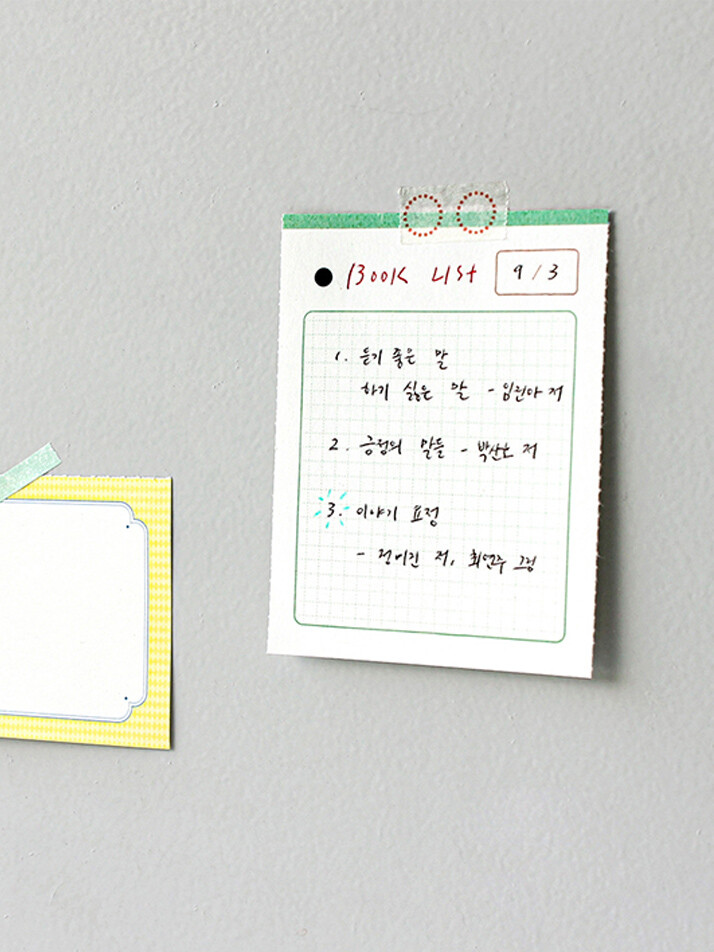 BOOK LIST 9/3
1. 듣기 좋은 말
하기 싫은 말 - 임진아 저
2. 긍정의 말들 - 박산호 저
3. 이야기 표정
- 정미진 저, 최연주 그림